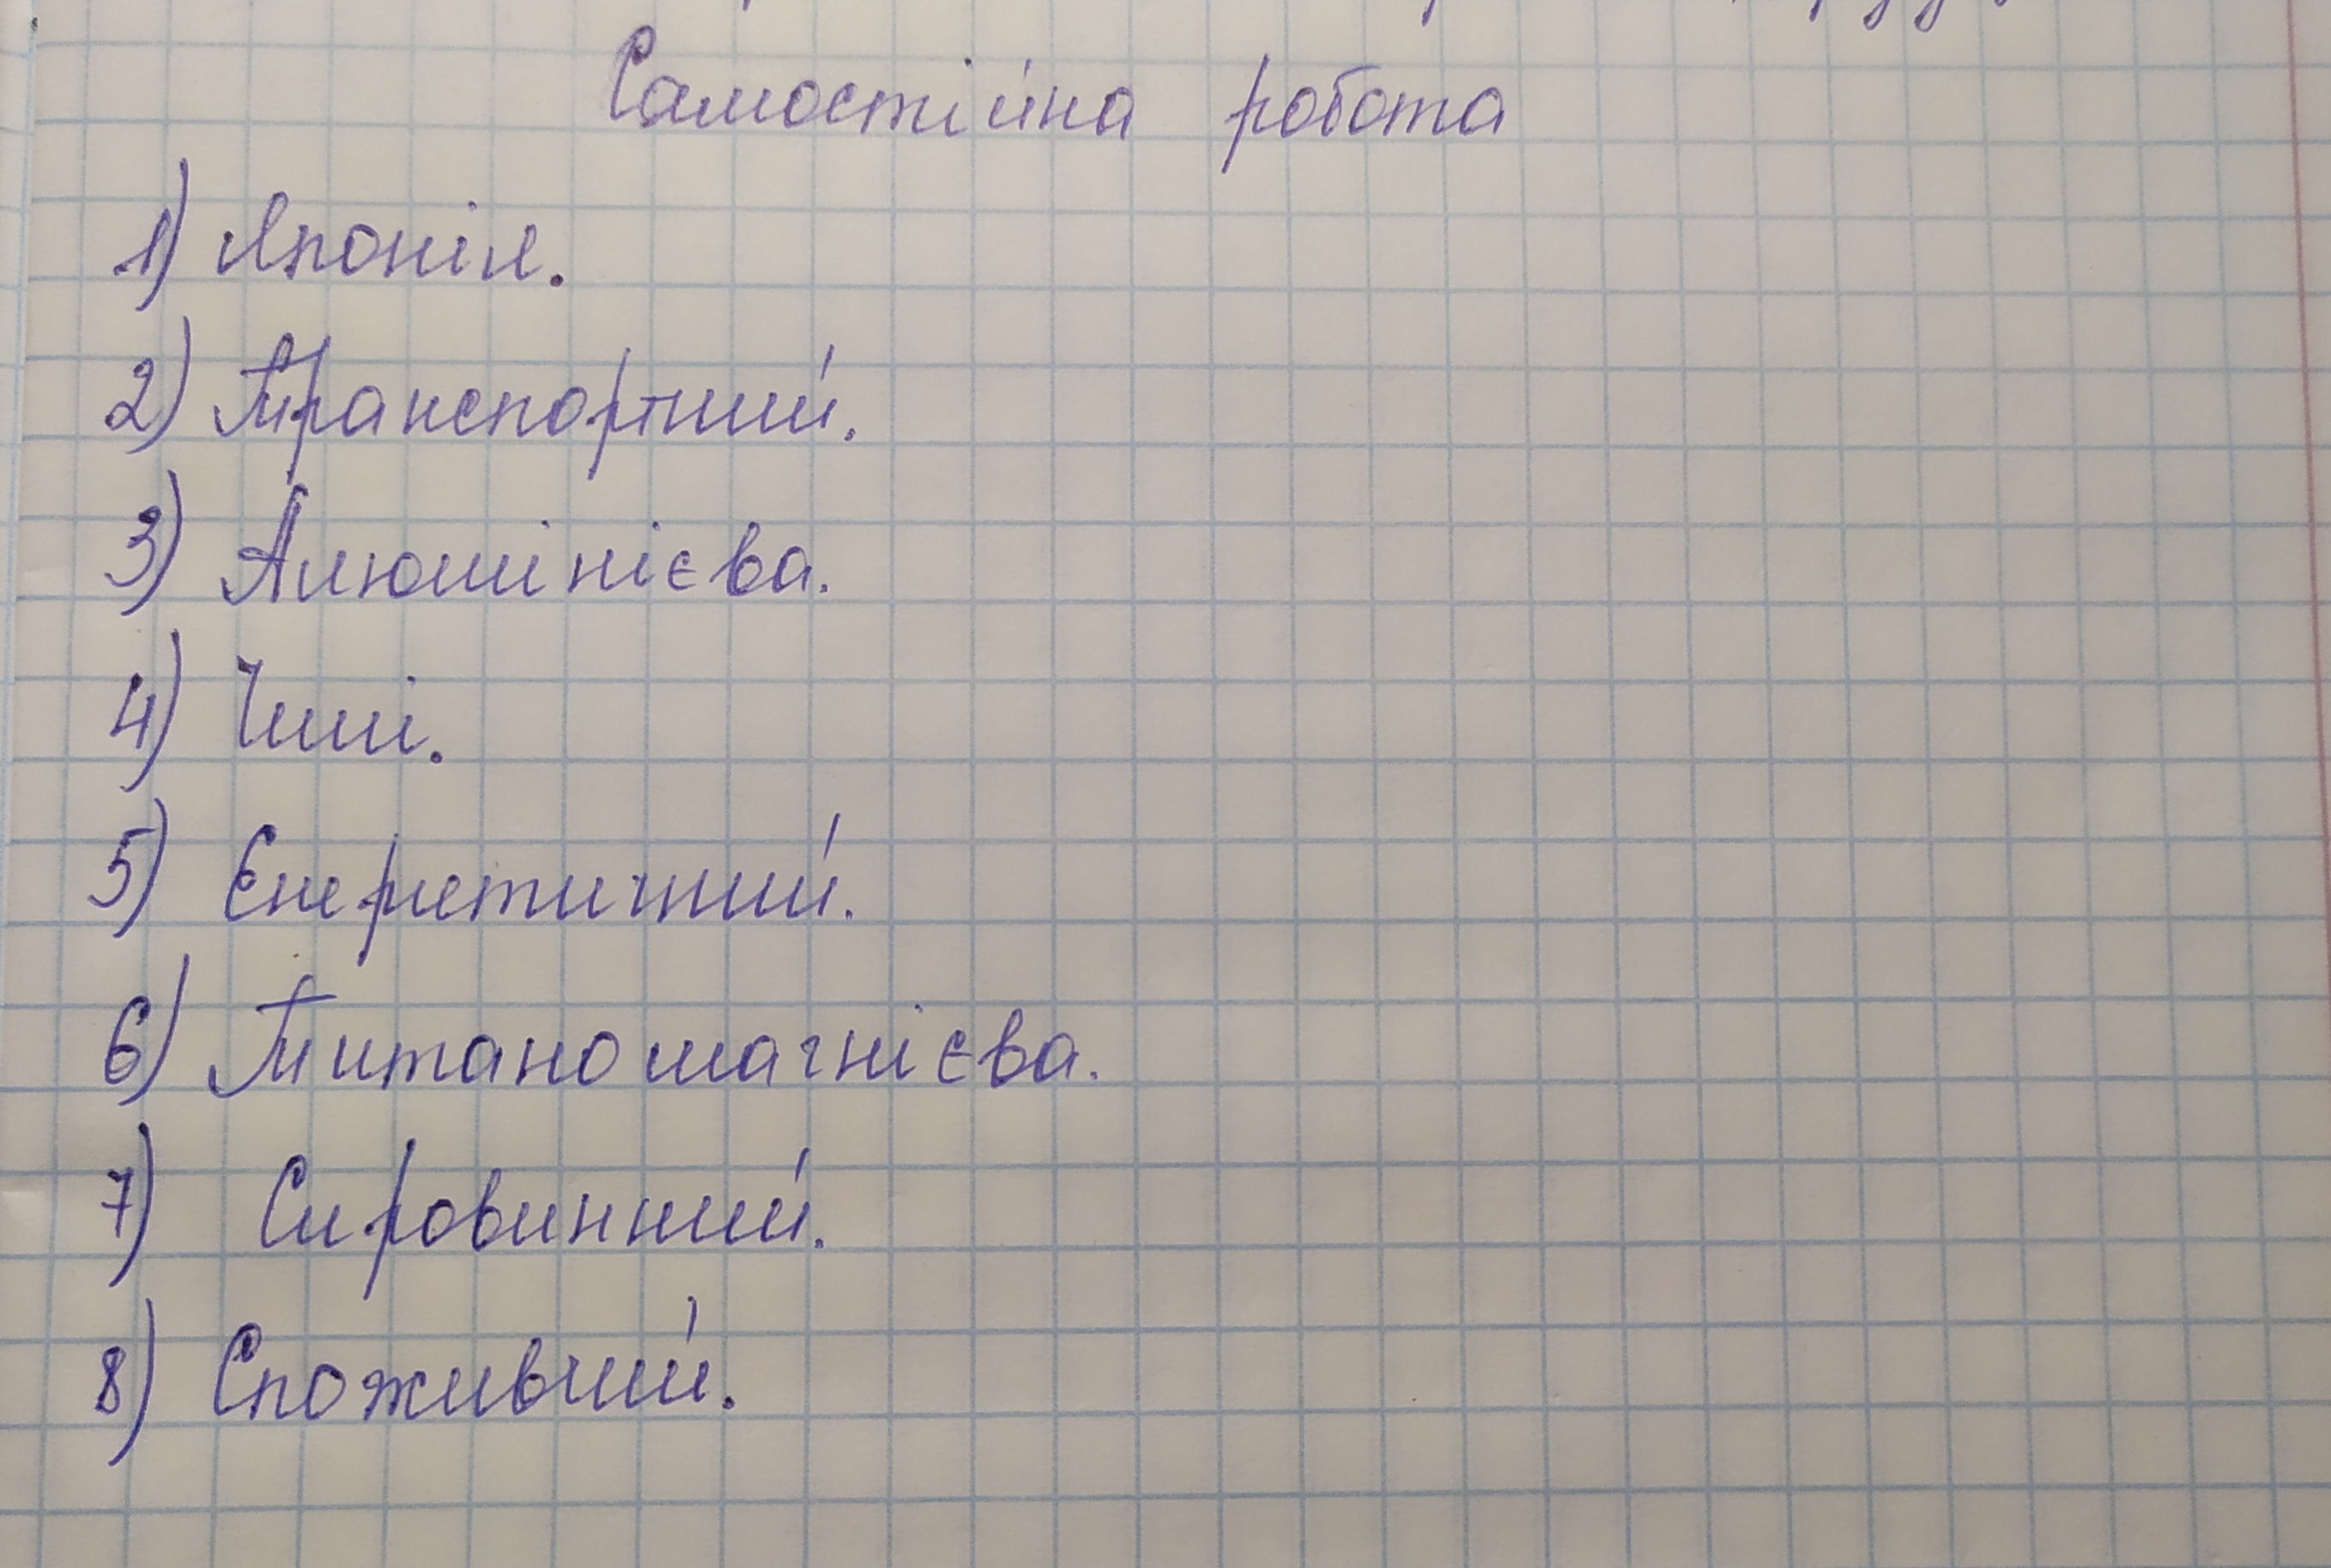 Самостійна робота
1) Японія.
2) Транспортний.
3) Алюмінієва.
4) Чилі.
5) Єнергетичний.
6) Титаномагнієва.
7) Сировинний.
8) Споживчий.